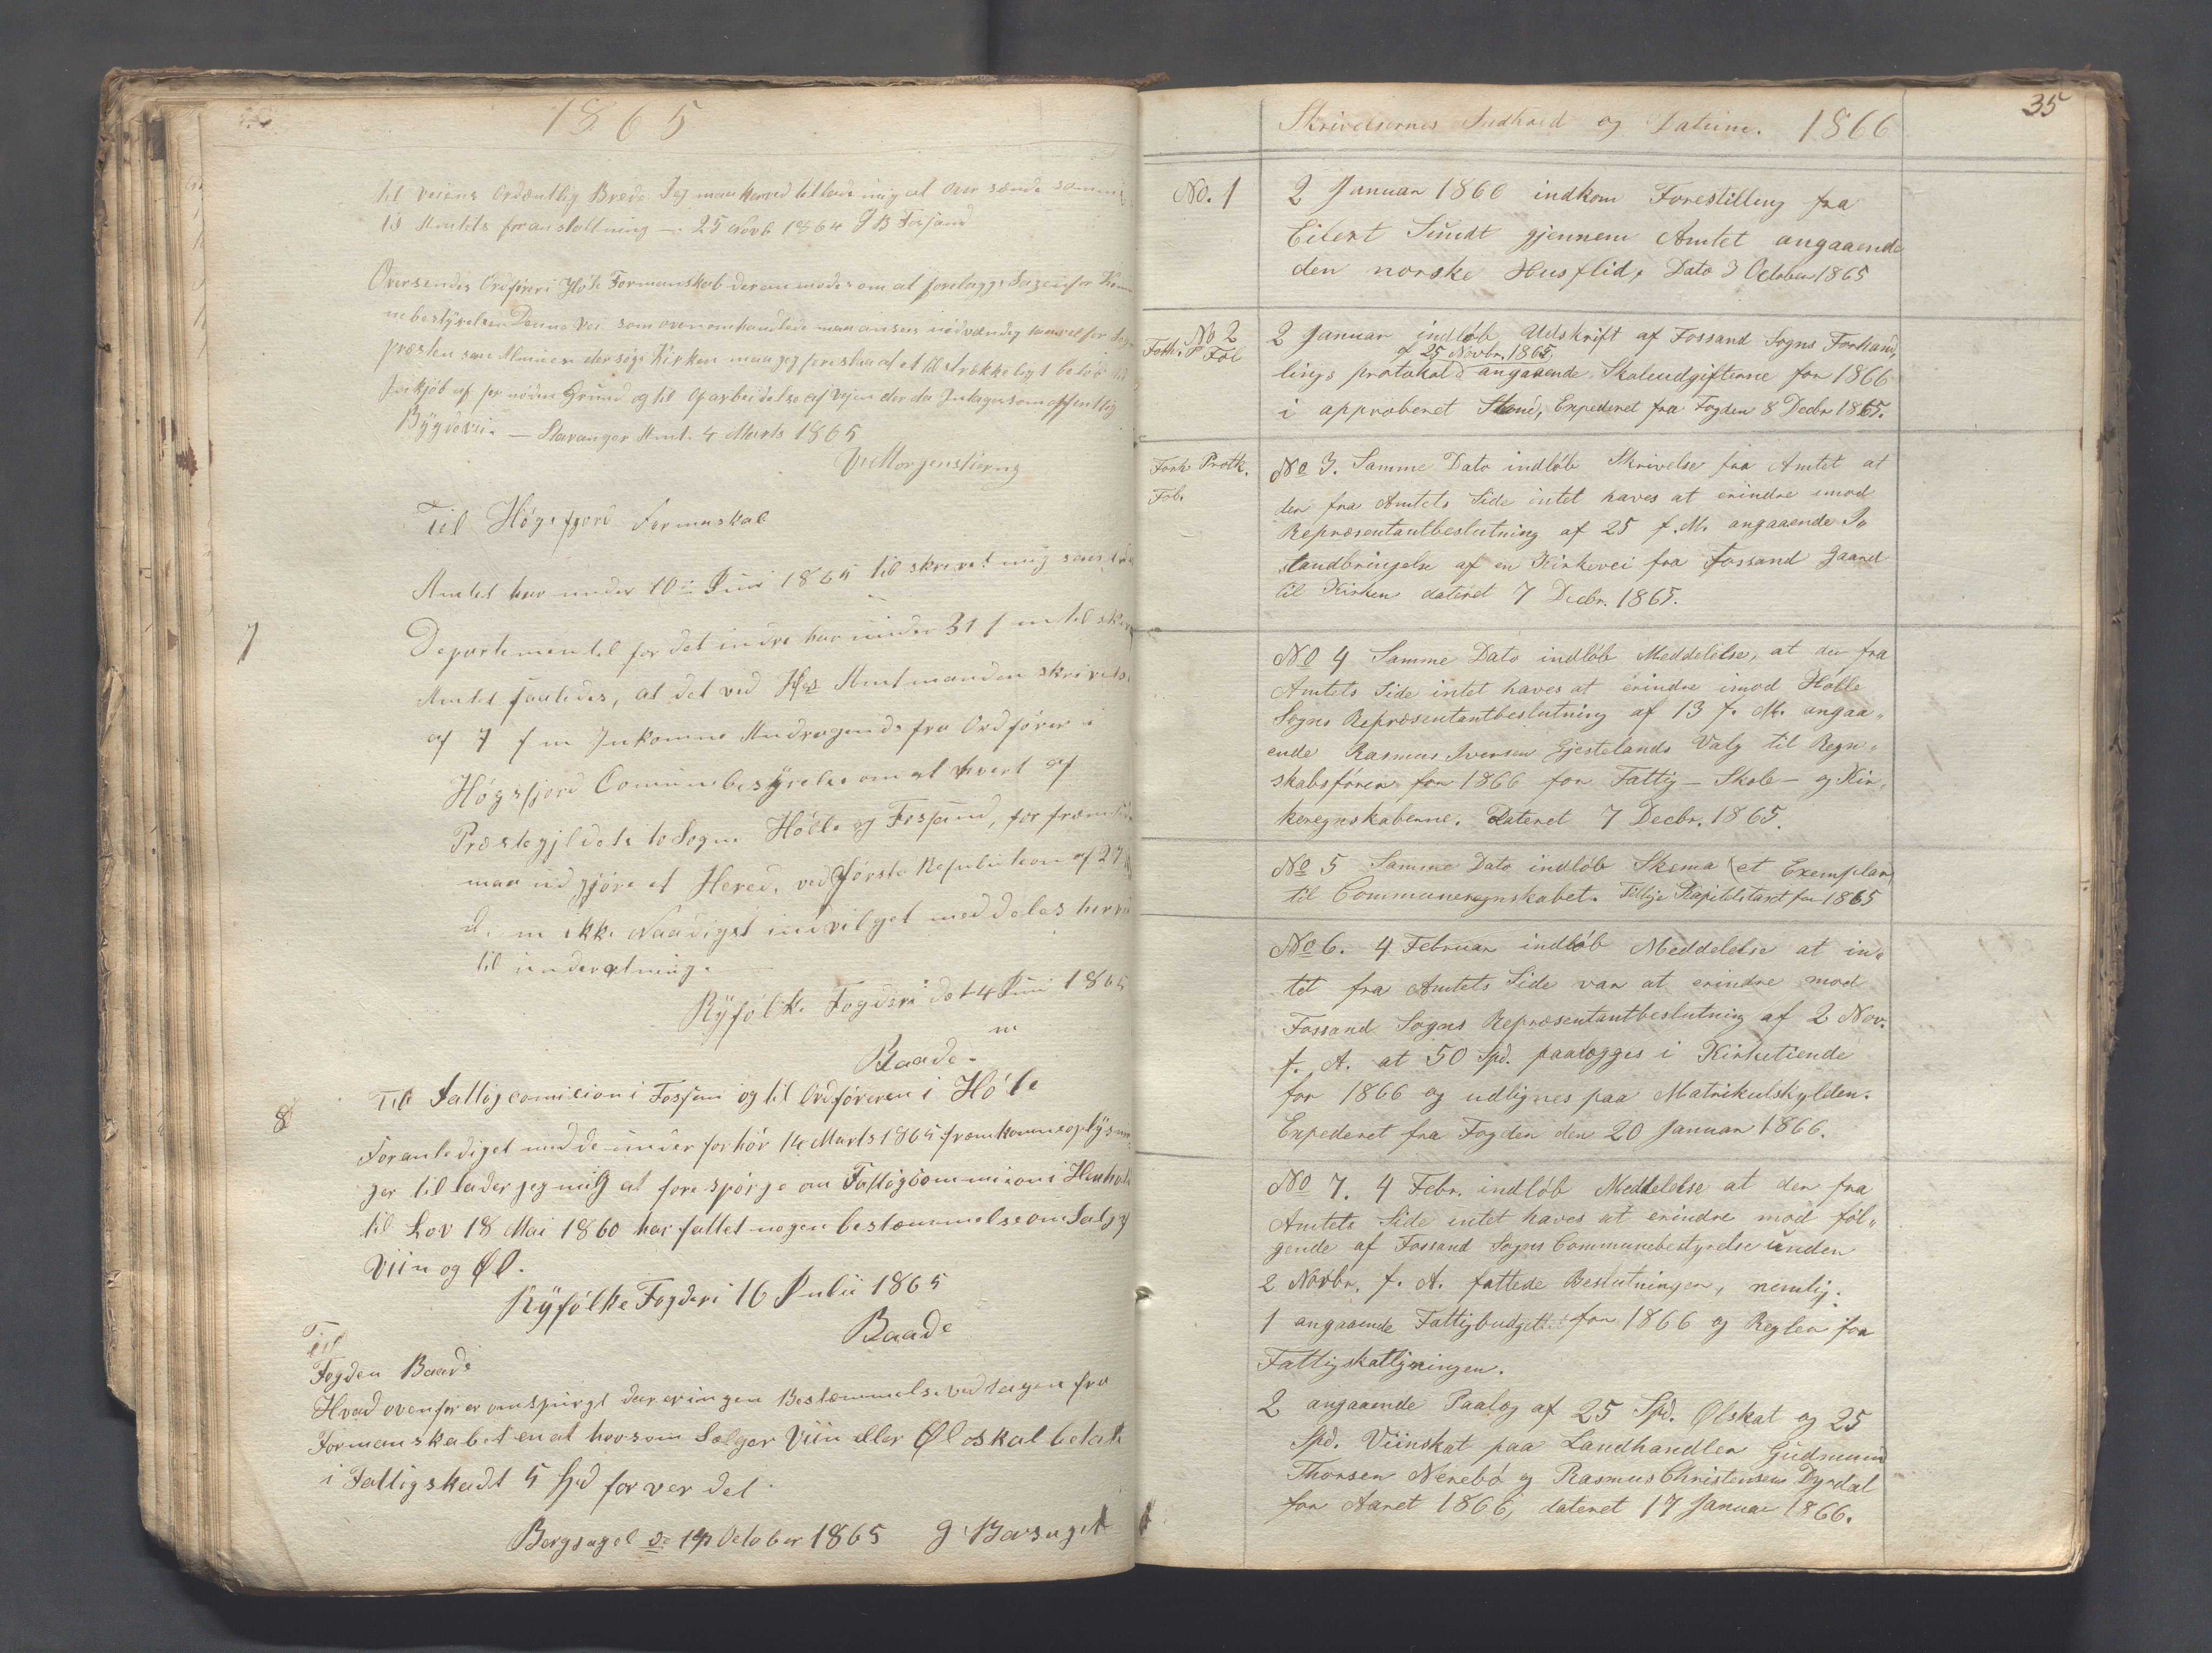 1865
til veiens Ordæntlig Brede Jeg maa herved tillade mig at over sænde samme
til Amtets foranstaltning — 25 Novb 1864 J B Fosjand
Oversendes Ordføreri Høle Formanskab der anmodes om at forelægge Sagen for Kom
nebestyrelsen Denne Vei som oven omhandlede maa ansees nødvændig saavel for
præsten som Almuen der søge Kirken maa jeg foreslaa at et tilstrækkeligt beløb til
indkjøb af for nøden Grund og til Oparbeidelse af vejen der da Intages som offentlig
Bÿgdevei. — Stavanger Amt 4 Marts 1865
Morgenstierne
Til Høgsfjord Formnskab
7
Amtet har under 10de Juni 1865 til skrevet mig saaledes
Departementet for det indre har under 31 f m til skrevet
Amtet saaledes, at det ved Hrs Amtmanden skrivelse
af 7 f m Inkomne Andragende fra Ordfører i
Høgsfjord Comunebestÿrelse om at hvert af
Præstegjeldets to Sogne Høle og Fosjand, for fremtiden
maa udgjøre et Hered, ved Første Resulution af 27
d. m ikke Naadigst indvilget meddeles herved
til underætning.
Rÿfølke Fogderi de 24 Juni 1865
Baade
8
Til Fattigcomicion i Fossan og til Ordføreren i Høle
Foranlediget med de under forhør 14 Marts 1865 fremkomne oplÿsnin
ger tillader jeg mig at fore spørge om Fattigcommicion i Henhold
til Lov 18 Mai 1860 har fattet nogen bestæmmelse om Salg af
Viin og Øl.
Rÿfølke Fogderi 16 Julii 1865
Baade
Til
Fogden Baade
Hvad ovenfor er omspurgt der er ingen Bestæmmelse vedtagen fra
Formanskabet en at hvo som Sælger Viin eller Øl skal betale
i Fattigskadt 5 Spd for ver del
Bergsagel de 14 October 1865 G Barsaget
35
Skrivelsernes Indhold og Datum. 1866
No. 1 2 Januar 1866 indkom Forestilling fra
Eilert Sundt gjennem Amtet angaaende
den norske Husflid, Dato 3 October 1865
No 2 2 Januar indløb Udskrift af Fossand Sogns Forhand,
Forh. P. Fol af 25 Novbr. 1865,
lings protokol angaaende Skoleudgifterne for 1866
i approberet Stand, Expederet fra Fogden 8 Decbr 1865.
Forh. Protk. No 3. Samme Dato indløb Skrivelse fra Amtet at
Fol. der fra Amtets Side intet haves at erindre imod
Repræsentantbeslutning af 25 f. M. angaaende I,,
standbringelse af en Kirkevei fra Fossand Gaard
til Kirken dateret 7 Decbr. 1865.
No 4 Samme Dato indløb Meddelelse, at der fra
Amtets Side intet haves at erindre imod Holle
Sogns Repræsentantbeslutning af 13 f. M. angaa,,
ende Rasmus Iversen Gjestelands Valg til Regn,,
skabsfører for 1866 for Fattig – Skole – og Kir,,
keregnskaberne. Dateret 7 Decbr. 1865.
No 5 Samme Dato indløb Skema (et Exemplar)
til Communeregnskabet. Tillige Kapitelstaxt for 1865
No 6. 4 Februar indløb Meddelelse at in,
tet fra Amtets Side var at erindre mod
Fossand Sogns Repræsentantbeslutning af 2 Nov.
f. A. at 50 Spd. paalægges i Kirketiende
for 1866 og udlignes paa Matrikulskylden.
Expederet fra Fogden den 20 Januar 1866.
No 7. 4 Febr. indløb Meddelelse at der fra
Amtets Side intet haves at erindre mod føl,,
gende af Fossand Sogns Communebestyrelse under
2 Novbr. f. A. fattede Beslutninger, nemlig:
1 angaaende Fattigbudgettet for 1866 og Regler for
Fattigskatligningen.
2 angaaende Paalæg af 25 Spd. Ølskat og 25
Spd. Viinskat paa Landhandler Gudmund
Thorsen Nerebø og Rasmus Christensen Dyrdal
for Aaret 1866, dateret 17 Januar 1866.